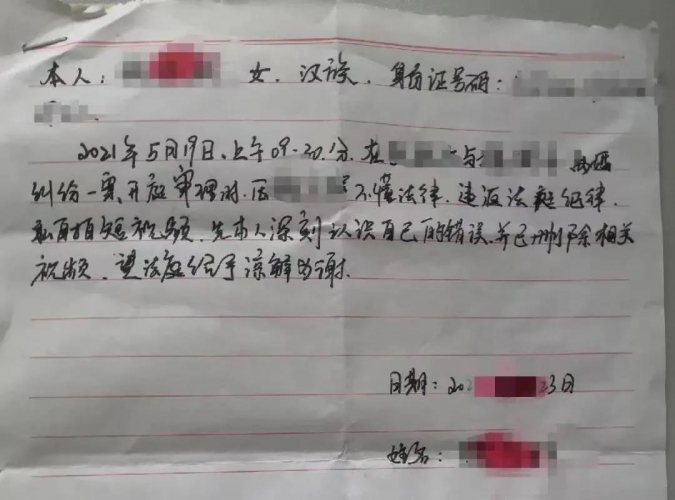 本人： 女、汉族、身份证号码：
2021年5月19日、上午09.20分、在 与
纠纷一案、开庭审理时、因 不懂法律、违返法庭纪律、
私自拍短视频、先本人深刻认识自己的错误、并已删除相关
视频、望法庭给予谅解为谢.
日期：202 23日
姓名：